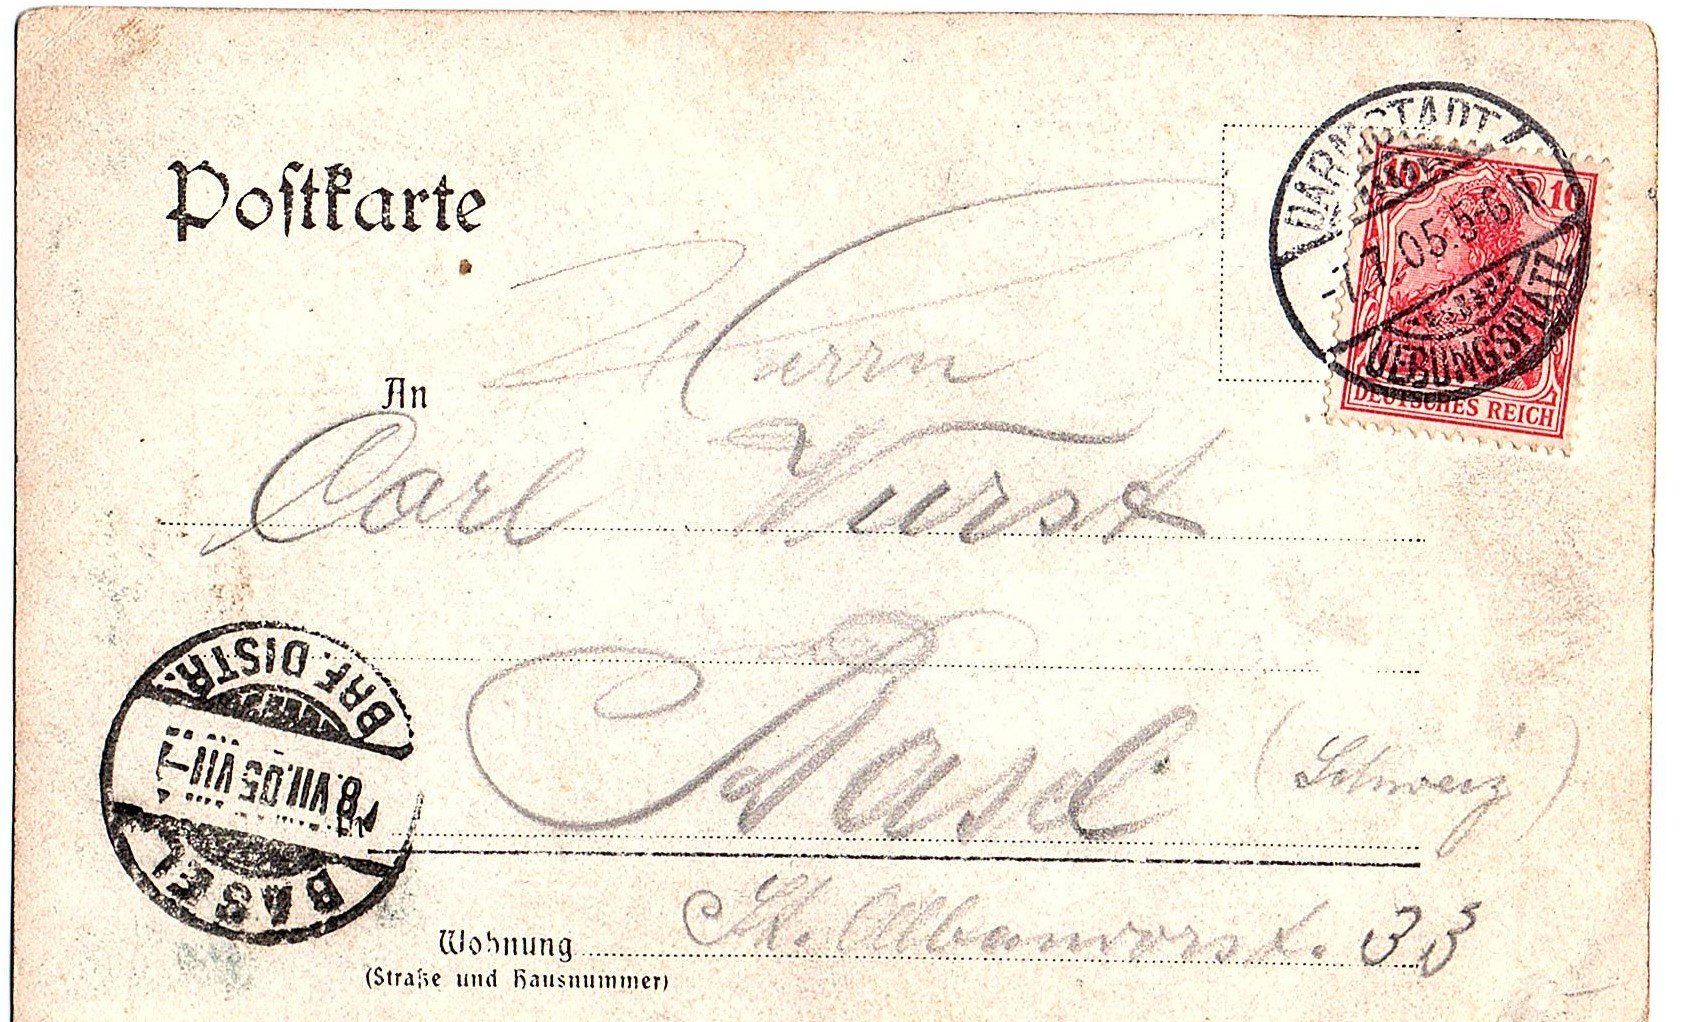 Postkarte
DARMSTADT
10 10
7.7.05.5-6N
UEBUNGSPLATZ
DEUTSCHES REICH
Herrn
An
Carl Wurst
Basel (Schweiz)
BRF. DISTR.
8.VII.05.VII
BASEL
Wohnung St. Albanvorst. 33
(Straße und Hausnummer)